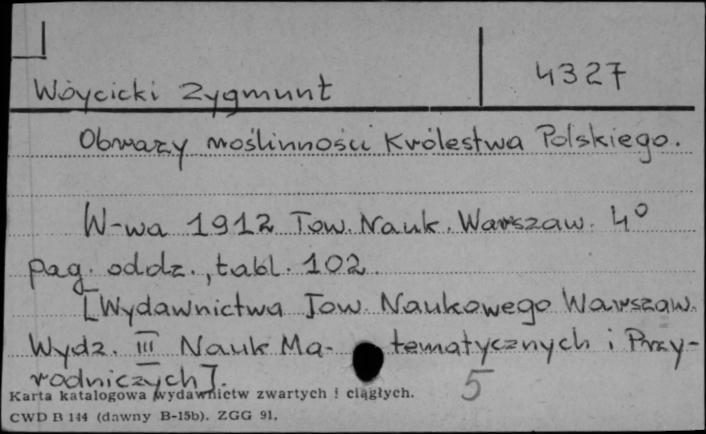 4327
Wóycicki Zygmunt
Obrazy roślinności Królestwa Polskiego.
W-wa 1912 Tow. Nauk. Warszaw. 4°
pag. oddz., tabl. 102.
[Wydawnictwa Tow. Naukowego Warszaw.
Wydz. III Nauk Ma- tematycznych i Przy-
rodniczych].
5
Karta katalogowa wydawnictw zwartych i ciągłych.
CWD B 144 (dawny B-15b). ZGG 91.